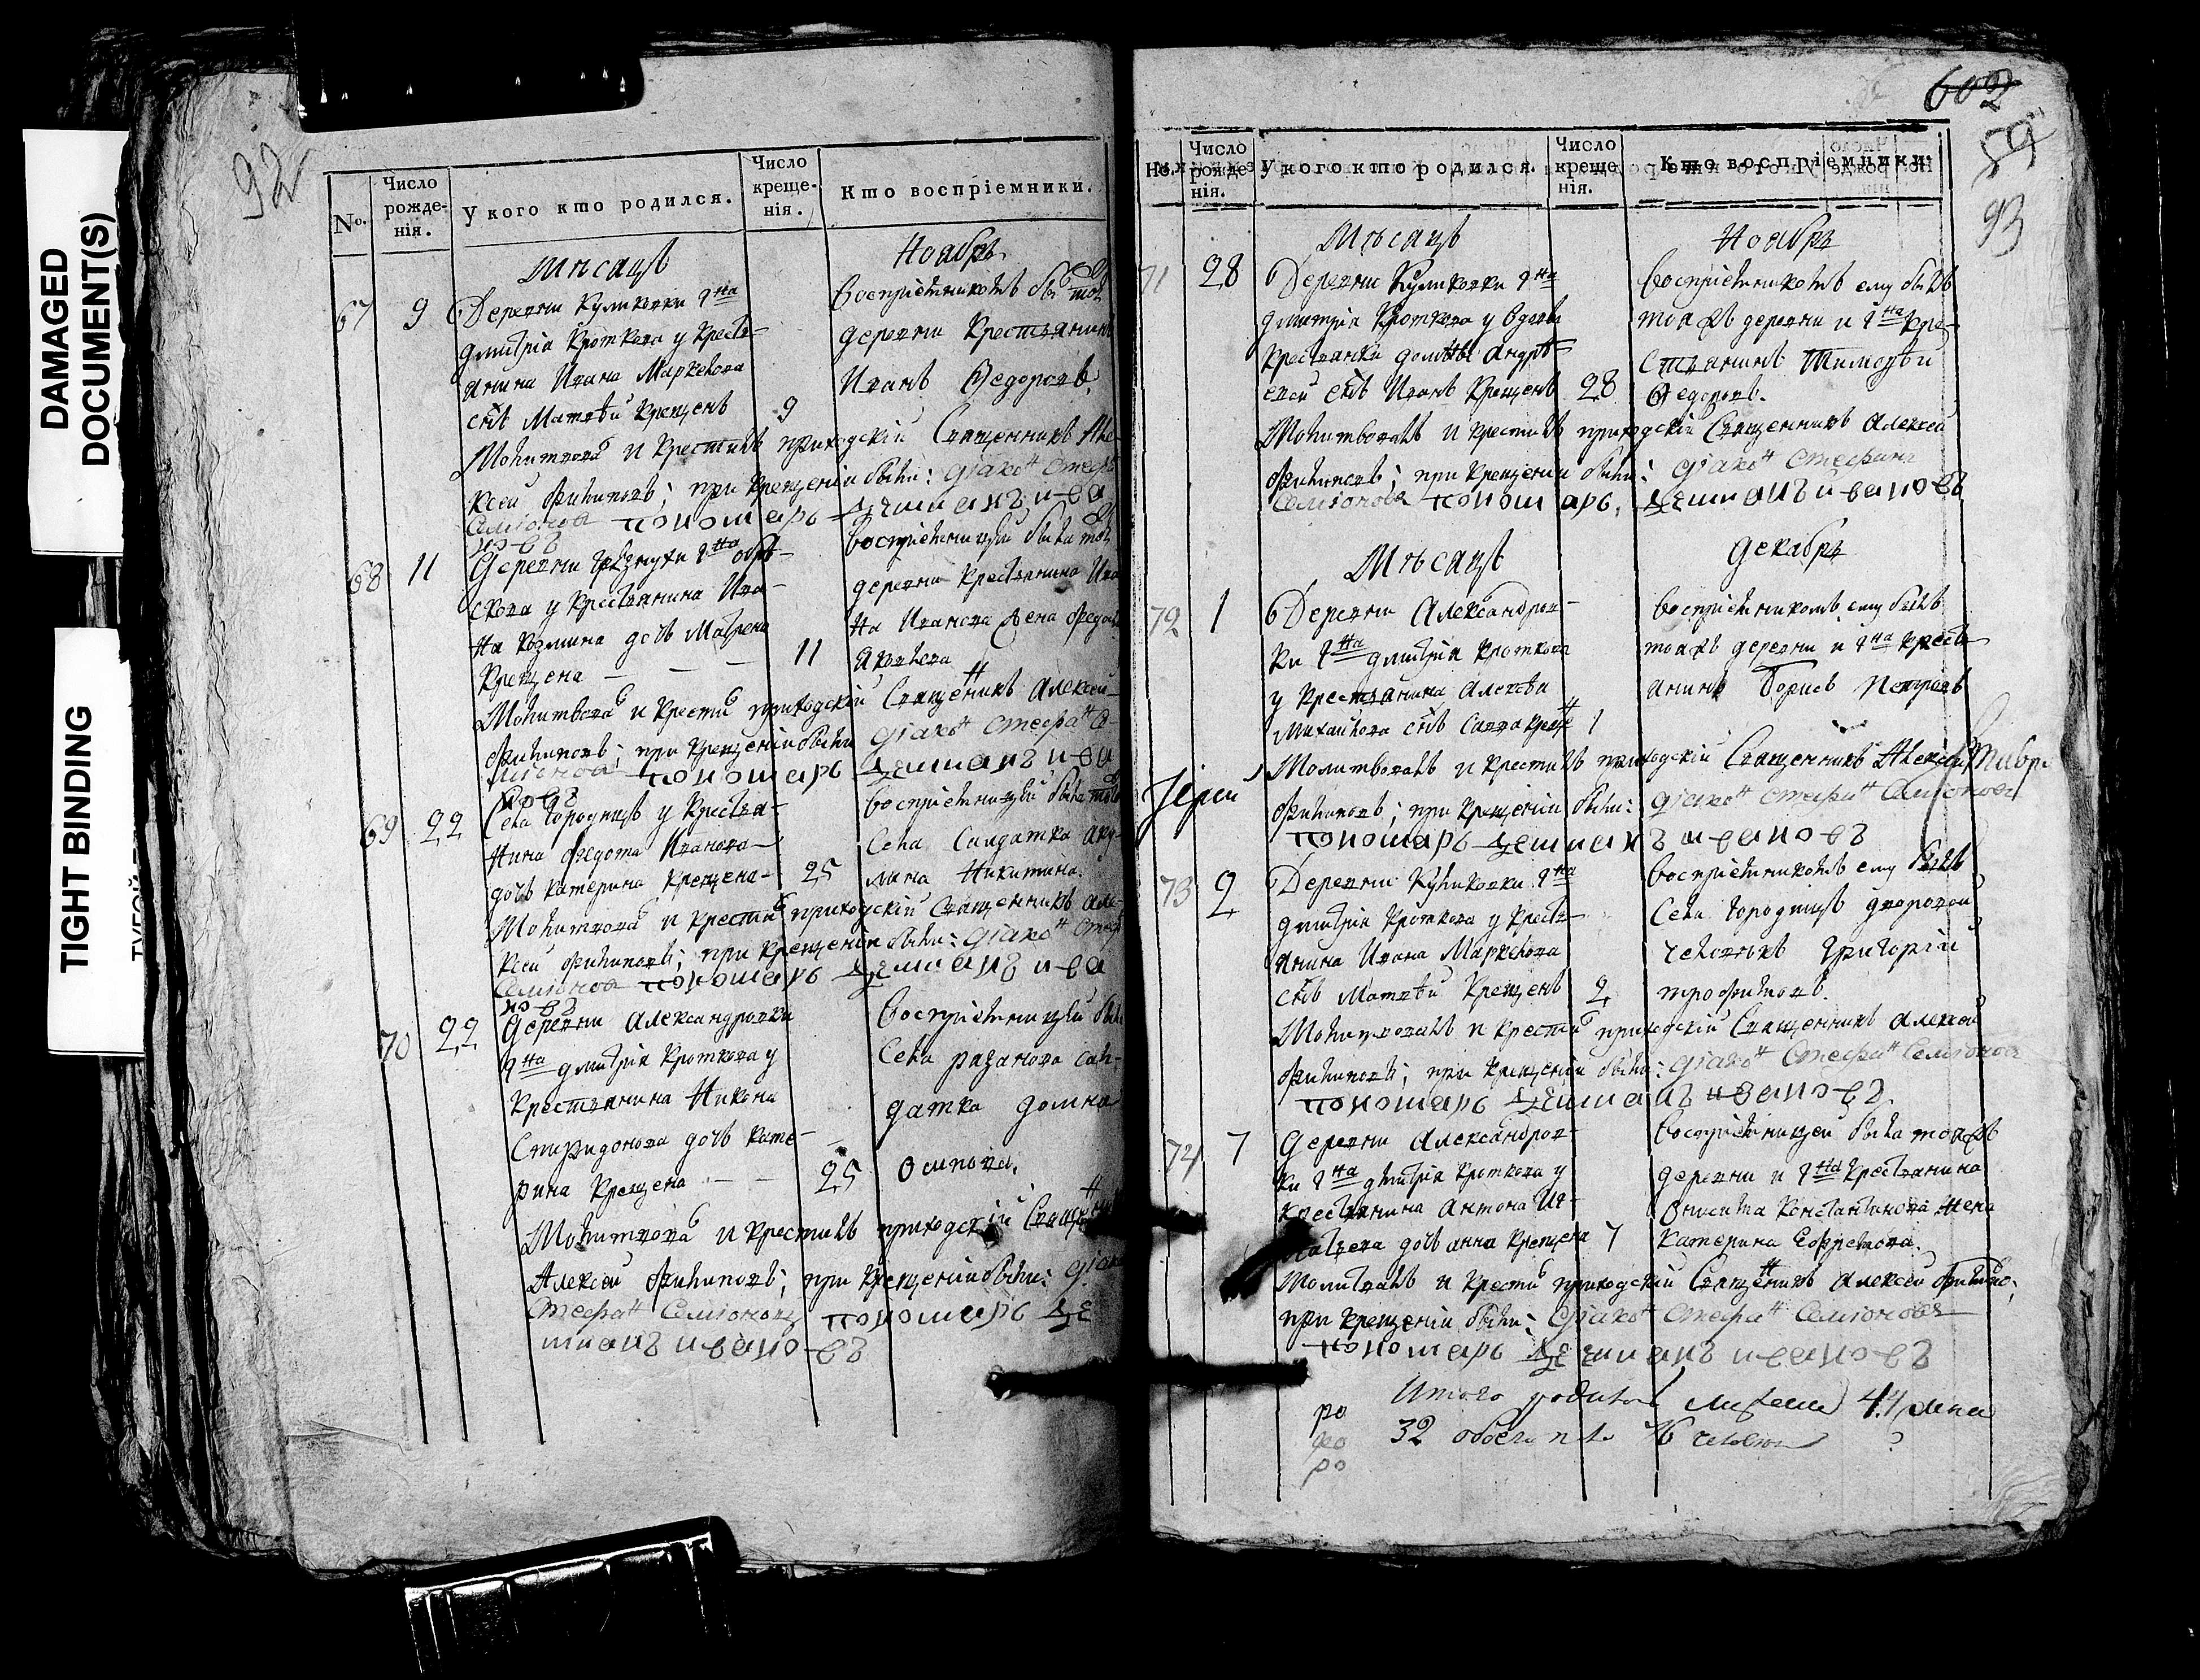 DAMAGED
DOCUMENT(S)
TIGHT BINDING
92
No.
Число рожденія.
У кого кто родился.
Число крещенія.
Кто воспріемники.
Мѣсяцъ Ноябрь
67 9 Деревни Куликовки гна
Дмитрія Кроткова у кресть-
янина Ивана Маркелова
снъ Матвѣй крещенъ 9
воспріемникомъ бы той
деревни крестьянинъ
Иванъ Федоровъ.
Молитвова и крестилъ приходскій Священникъ Але-
ксей Филиповъ; при крещеніи были: діаконъ Стефа
Семіоновъ пономарь Демианъ Ива
новъ
68 11 Деревни
у крестьянина Ива-
на Козмина дочь Матрена
крещена — — 11
воспріемницей была той
деревни крестьянина Ива
на Иванова жена Федо
Яковлева
Молитвова и крести приходскій Священникъ Алексей
Филиповъ; при крещеніи были діаконъ Стефанъ Се-
міоновъ пономарь Демианъ Ива
новъ
69 22 Села Городищъ у крестья-
нина Федота Иванова
дочь Катерина крещена 25
воспріемницей была того
села салдатка Аку-
лина Никитина.
Молитвова и крести приходскій Священникъ Але-
ксей Филиповъ; при крещеніи были: діаконъ Стеф
Семіоновъ пономарь Демианъ Ива
новъ
70 22 Деревни Александровки
гна Дмитрія Кроткова у
крестьянина Никона
Спиридонова дочь Кате-
рина крещена — — 25
воспріемницей был
села Рязанова сал-
датка Домна
Осипова.
Молитвова и крестилъ приходскій Священ
Алексей Филиповъ; при крещеніи были: діак
Стефанъ Семіоновъ пономарь Де
мианъ Ивановъ
602
93
No.
Число рожденія.
У кого кто родился.
Число крещенія.
Кто воспріемники.
Мѣсяцъ Ноябрь
71 28 Деревни Куликовки гна
Дмитрія Кроткова у вдовы
крестьянки Домны Андрѣ-
евой снъ Иванъ крещенъ 28
воспріемникомъ ему былъ
тояжъ деревни и гна кре-
стьянинъ Тимофѣй
Федоровъ.
Молитвовалъ и крестилъ приходскій Священникъ Алексей
Филиповъ; при крещеніи были: діаконъ Стефанъ
Семіоновъ пономарь, Демианъ Ивановъ
Мѣсяцъ Декабрь
72 1 Деревни Александров-
ки гна Дмитрія Кроткова
у крестьянина Алексѣя
Михайлова снъ Савва креще 1
воспріемникомъ ему былъ
тояжъ деревни и гна кресть-
янинъ Борисъ Петровъ
Молитвовалъ и крестилъ приходскій Священникъ Алексей
Іерей
Филиповъ; при крещеніи были: діаконъ Стефанъ Семіоновъ
пономарь Демианъ Ивановъ
73 2 Деревни Куликовки гна
Дмитрія Кроткова у кресть-
янина Ивана Маркелова
снъ Матвѣй крещенъ 2
воспріемникомъ ему былъ
села Городищъ дворовой
человѣкъ Григорій
Трофимовъ.
Молитвовалъ и крести приходскій Священникъ Алексей
Филиповъ; при крещеніи были: діаконъ Стефанъ Семіоновъ
пономарь Демианъ Ивановъ.
74 7 Деревни Александров-
ки гна Дмитрія Кроткова у
крестьянина Антона Иг-
натьева дочь Анна крещена 7
воспріемницей была тояжъ
деревни и гна крестьянина
Онисима Константинова жена
Катерина Ефремова.
Молитвалъ и крести приходскій Священникъ Алексей Филипо;
при крещеніи были: діаконъ Стефанъ Семіоновъ
пономарь Демианъ Ивановъ
Итого родилось 44
32 обоего 76